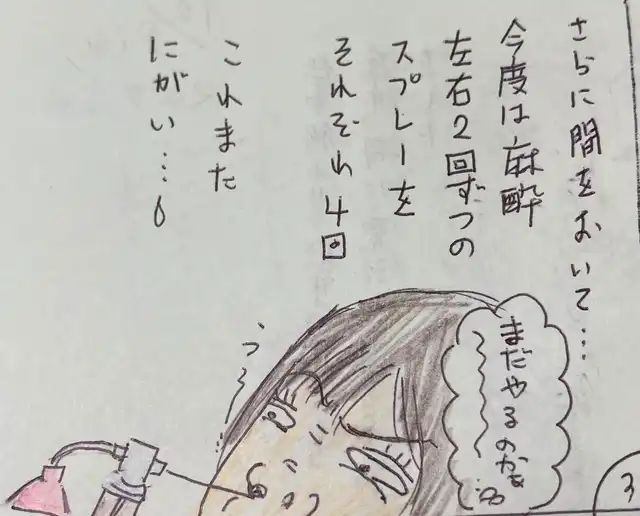 さらに間をおいて…
今度は麻酔
左右2回ずつの
スプレーを
それぞれ4回
これまた
にがい…
まだやるのかを
う〜
3